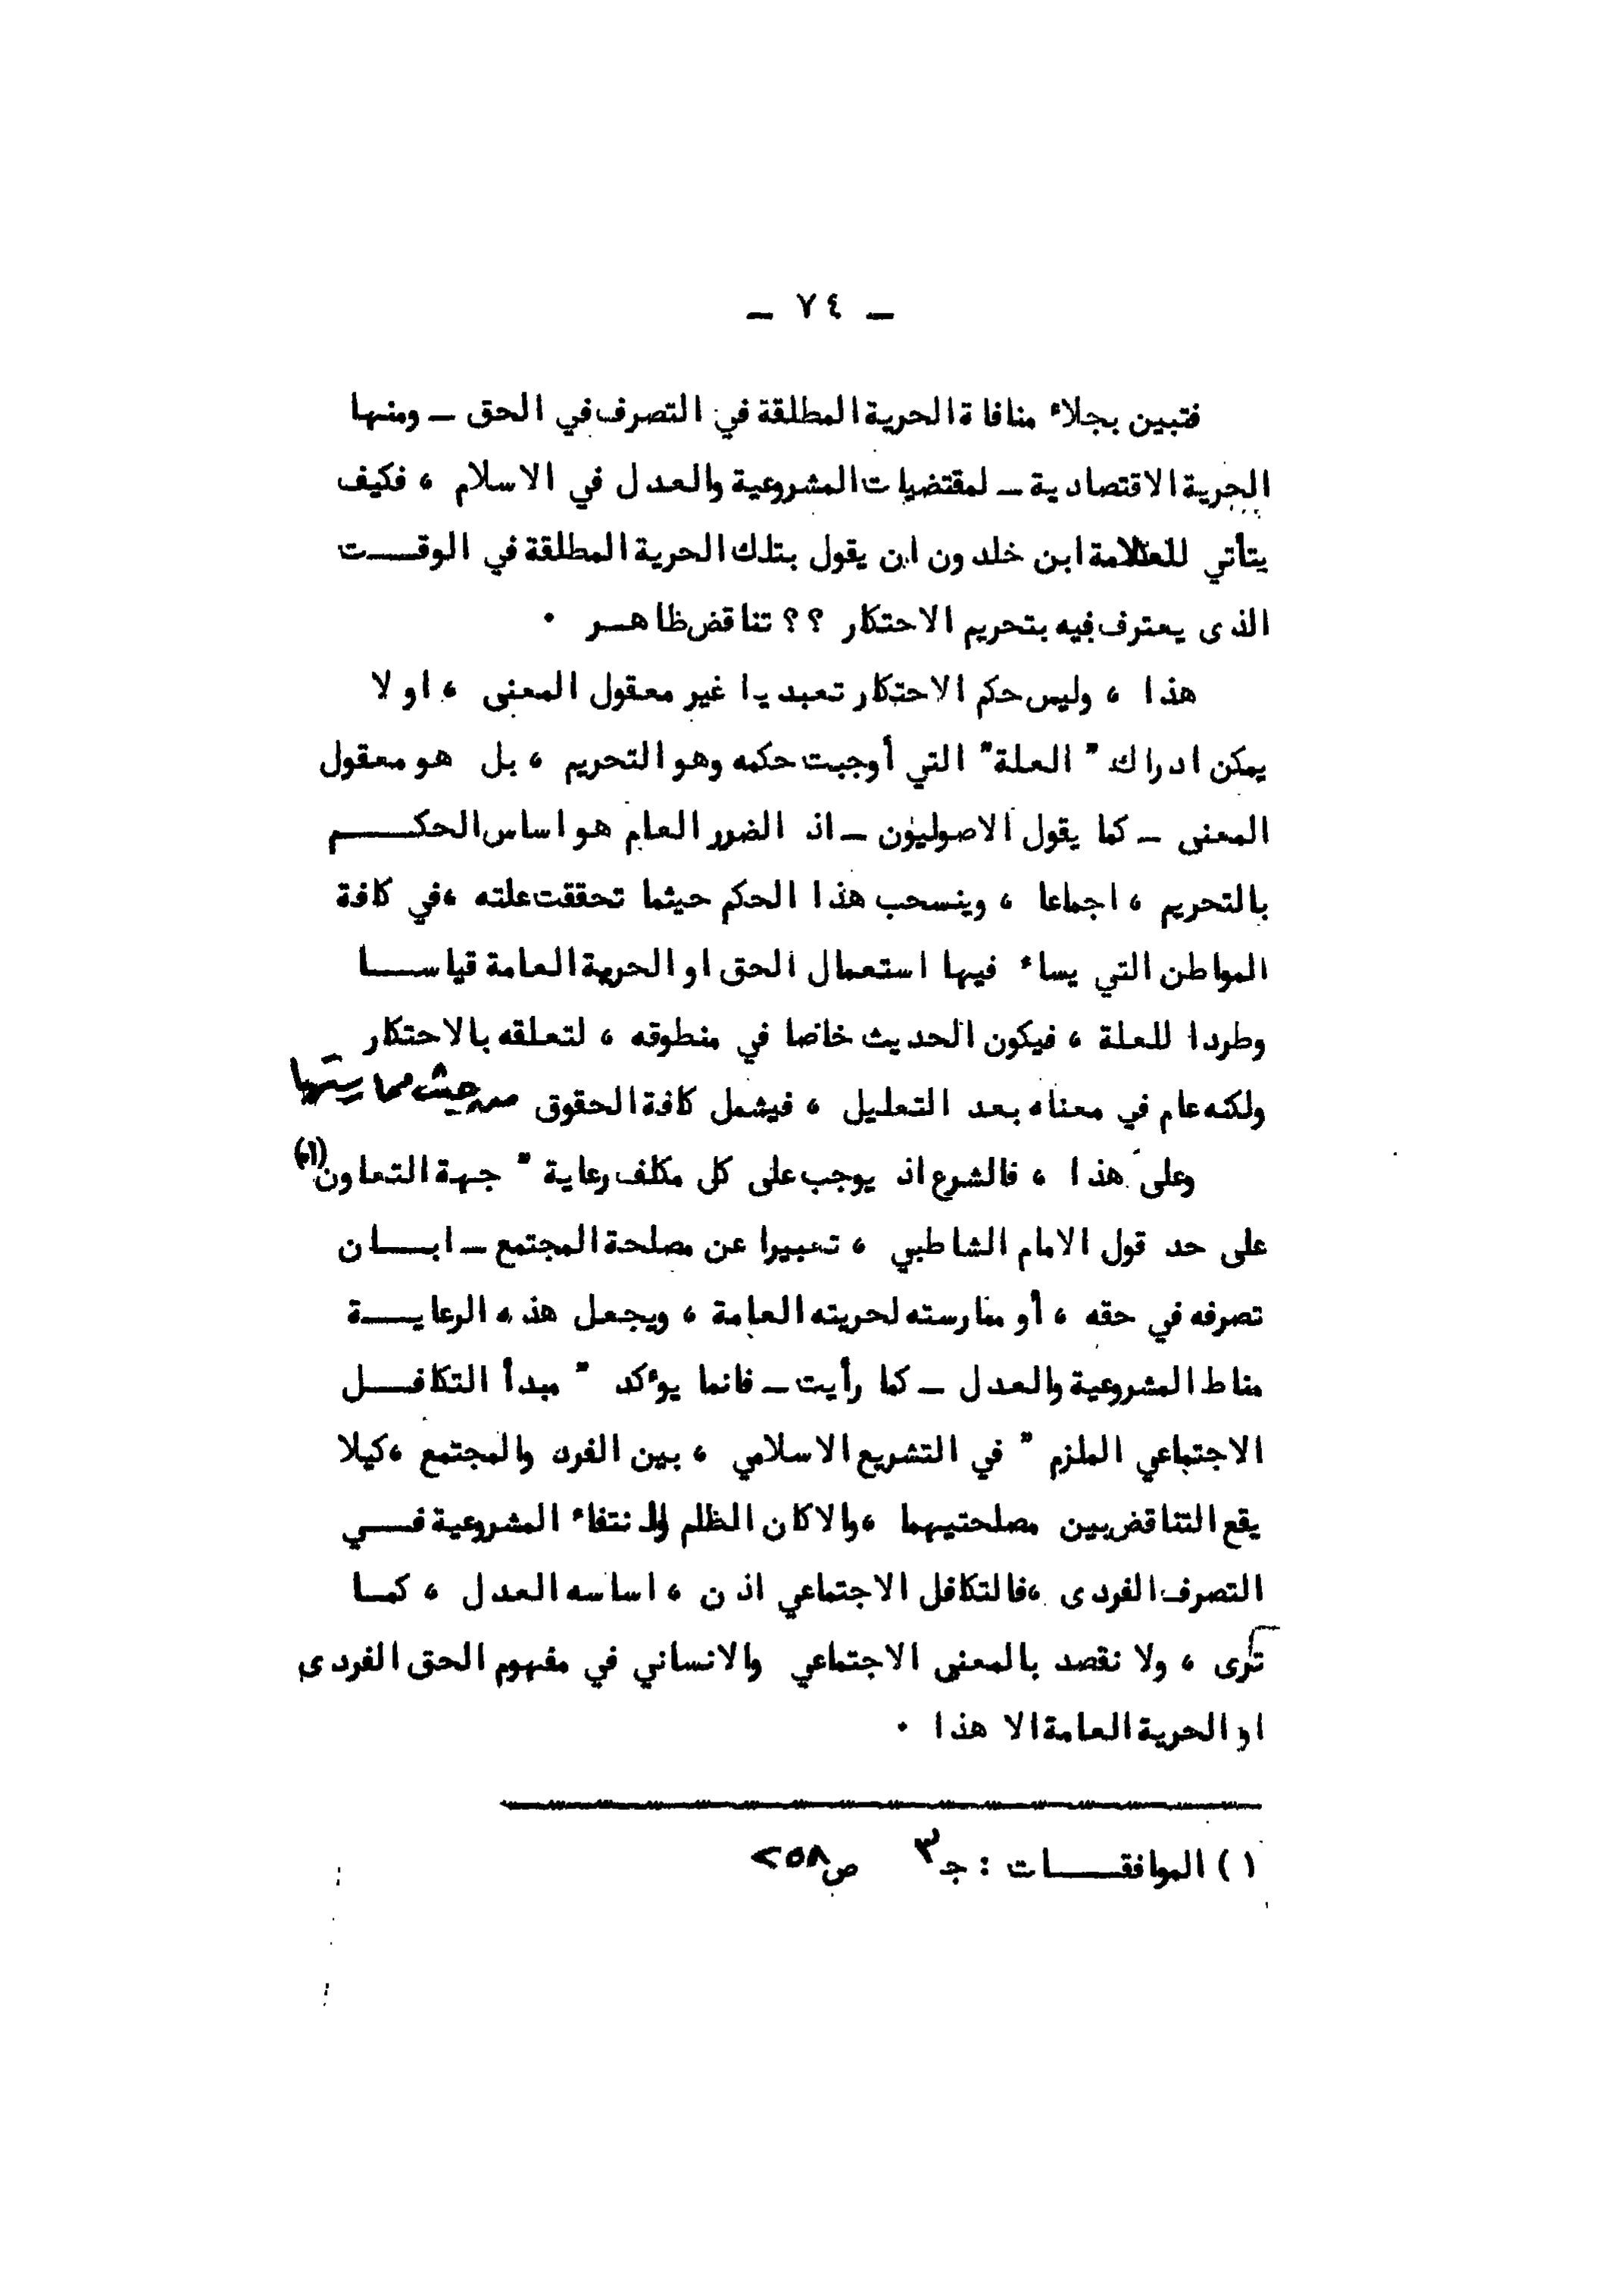 ـ ٧٤ ـ
فتبين بجلاء منافاة الحرية المطلقة في التصرف في الحق ـ ومنها
الحرية الاقتصادية ـ لمقتضيات المشروعية والعدل في الاسلام ، فكيف
يتأتي للعلامة ابن خلدون ان يقول بتلك الحرية المطلقة في الوقــت
الذى يعترف فيه بتحريم الاحتكار ؟؟ تناقض ظاهـر .
هذا ، وليس حكم الاحتكار تعبديا غير معقول المعنى ، او لا
يمكن ادراك " العلة " التي أوجبت حكمه وهو التحريم ، بل هو معقول
المعنى ـ كما يقول الاصوليون ـ اذ الضرر العام هو اساس الحكــــم
بالتحريم ، اجماعا ، وينسحب هذا الحكم حيثما تحققت علته ، في كافة
المواطن التي يساء فيها استعمال الحق او الحرية العامة قياســا
وطردا للعلة ، فيكون الحديث خاصا في منطوقه ، لتعلقه بالاحتكار
ولكنه عام في معناه بعد التعليل ، فيشمل كافة الحقوق من حيث ممارستها
وعلى هذا ، فالشرع اذ يوجب على كل مكلف رعاية " جهة التعاون (١)
على حد قول الامام الشاطبي ، تعبيرا عن مصلحة المجتمع ـ ابــان
تصرفه في حقه ، أو ممارسته لحريته العامة ، ويجعل هذه الرعايــة
مناط المشروعية والعدل ـ كما رأيت ـ فانما يوءكد " مبدأ التكافــل
الاجتماعي الملزم " في التشريع الاسلامي ، بين الفرد والمجتمع ، كيلا
يقع التناقض بين مصلحتيهما ، والا كان الظلم وانتفاء المشروعية فــي
التصرف الفردى ، فالتكافل الاجتماعي اذن ، اساسه العدل ، كمــا
ترى ، ولا نقصد بالمعنى الاجتماعي والانساني في مفهوم الحق الفردى
او الحرية العامة الا هذا .
١ ) الموافقــــات : جـ ٣ ص ٢٥٨